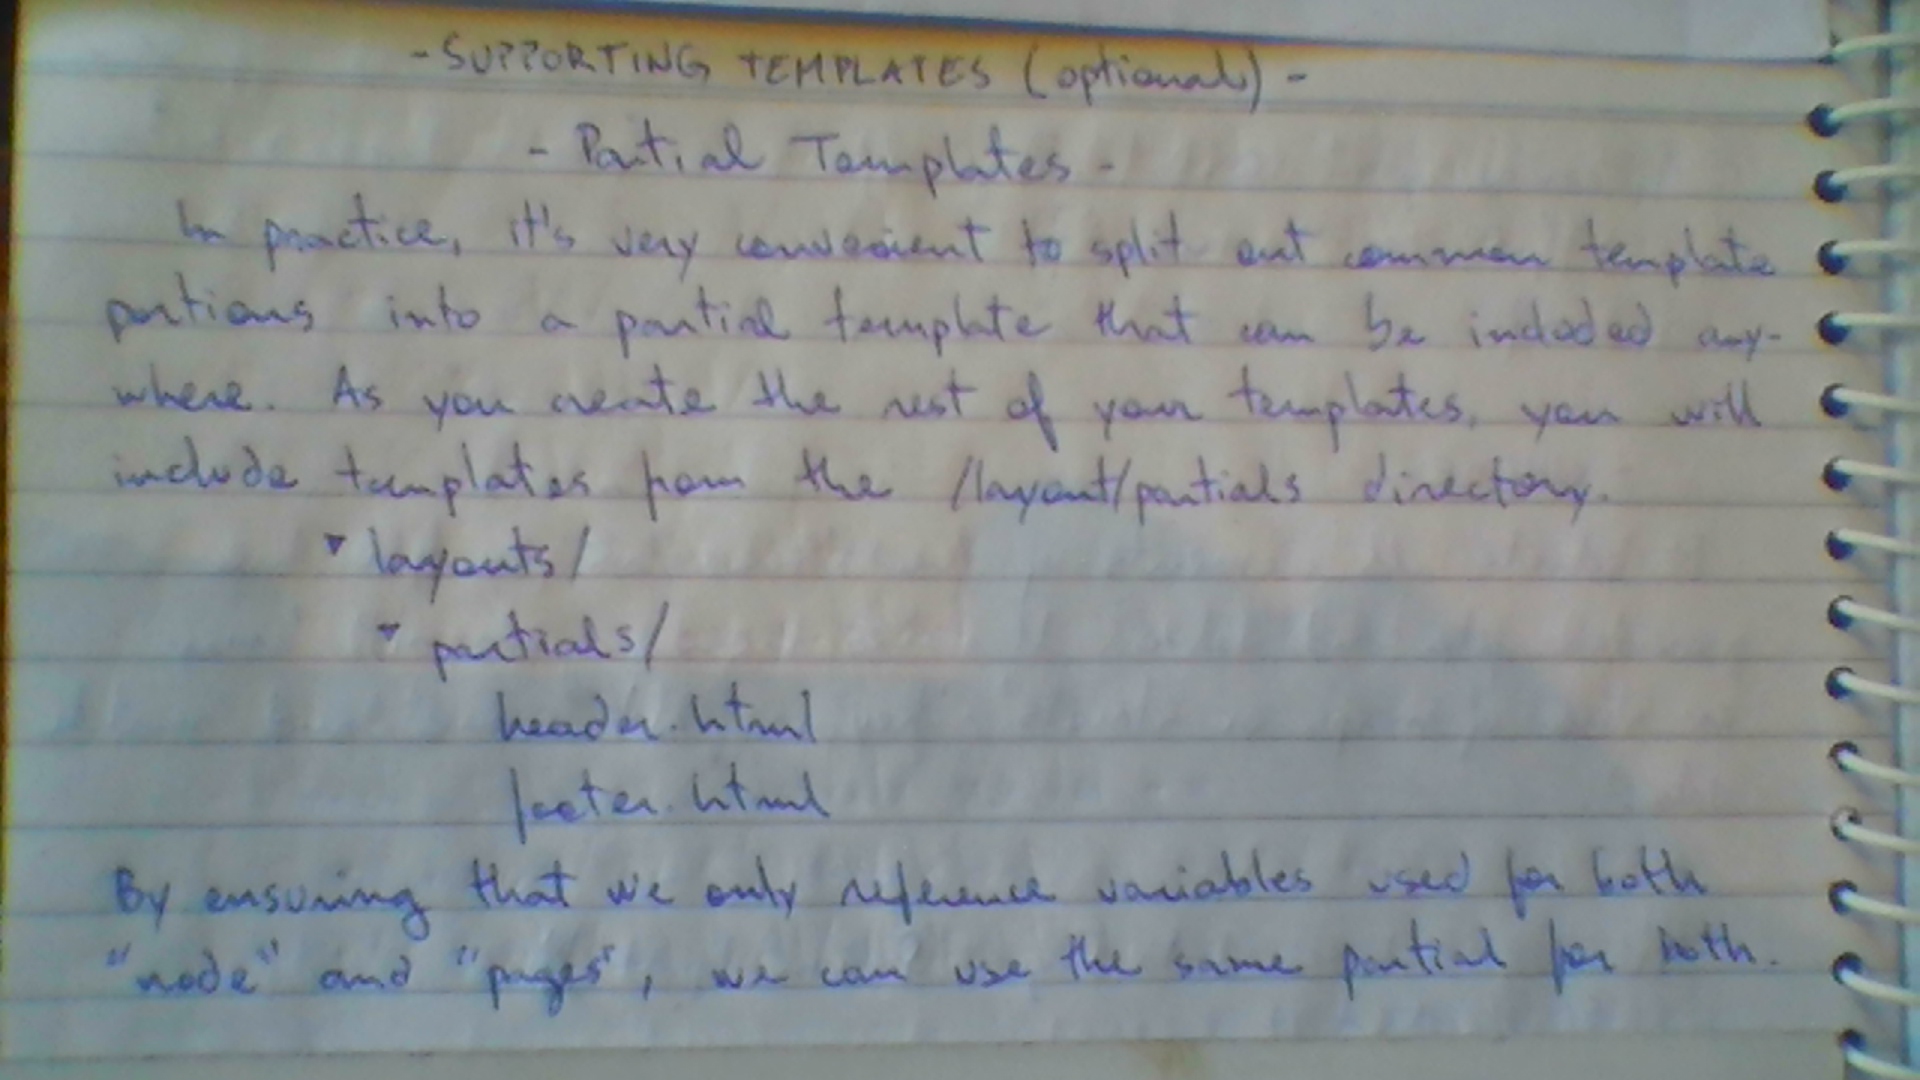 - SUPPORTING TEMPLATES (optional) -
- Partial Templates -
In practice, it's very convenient to split out common template
portions into a partial template that can be included any-
where. As you create the rest of your templates, you will
include templates from the /layout/partials directory.
▾ layouts/
▾ partials/
header.html
footer.html
By ensuring that we only reference variables used for both
"node" and "pages", we can use the same partial for both.